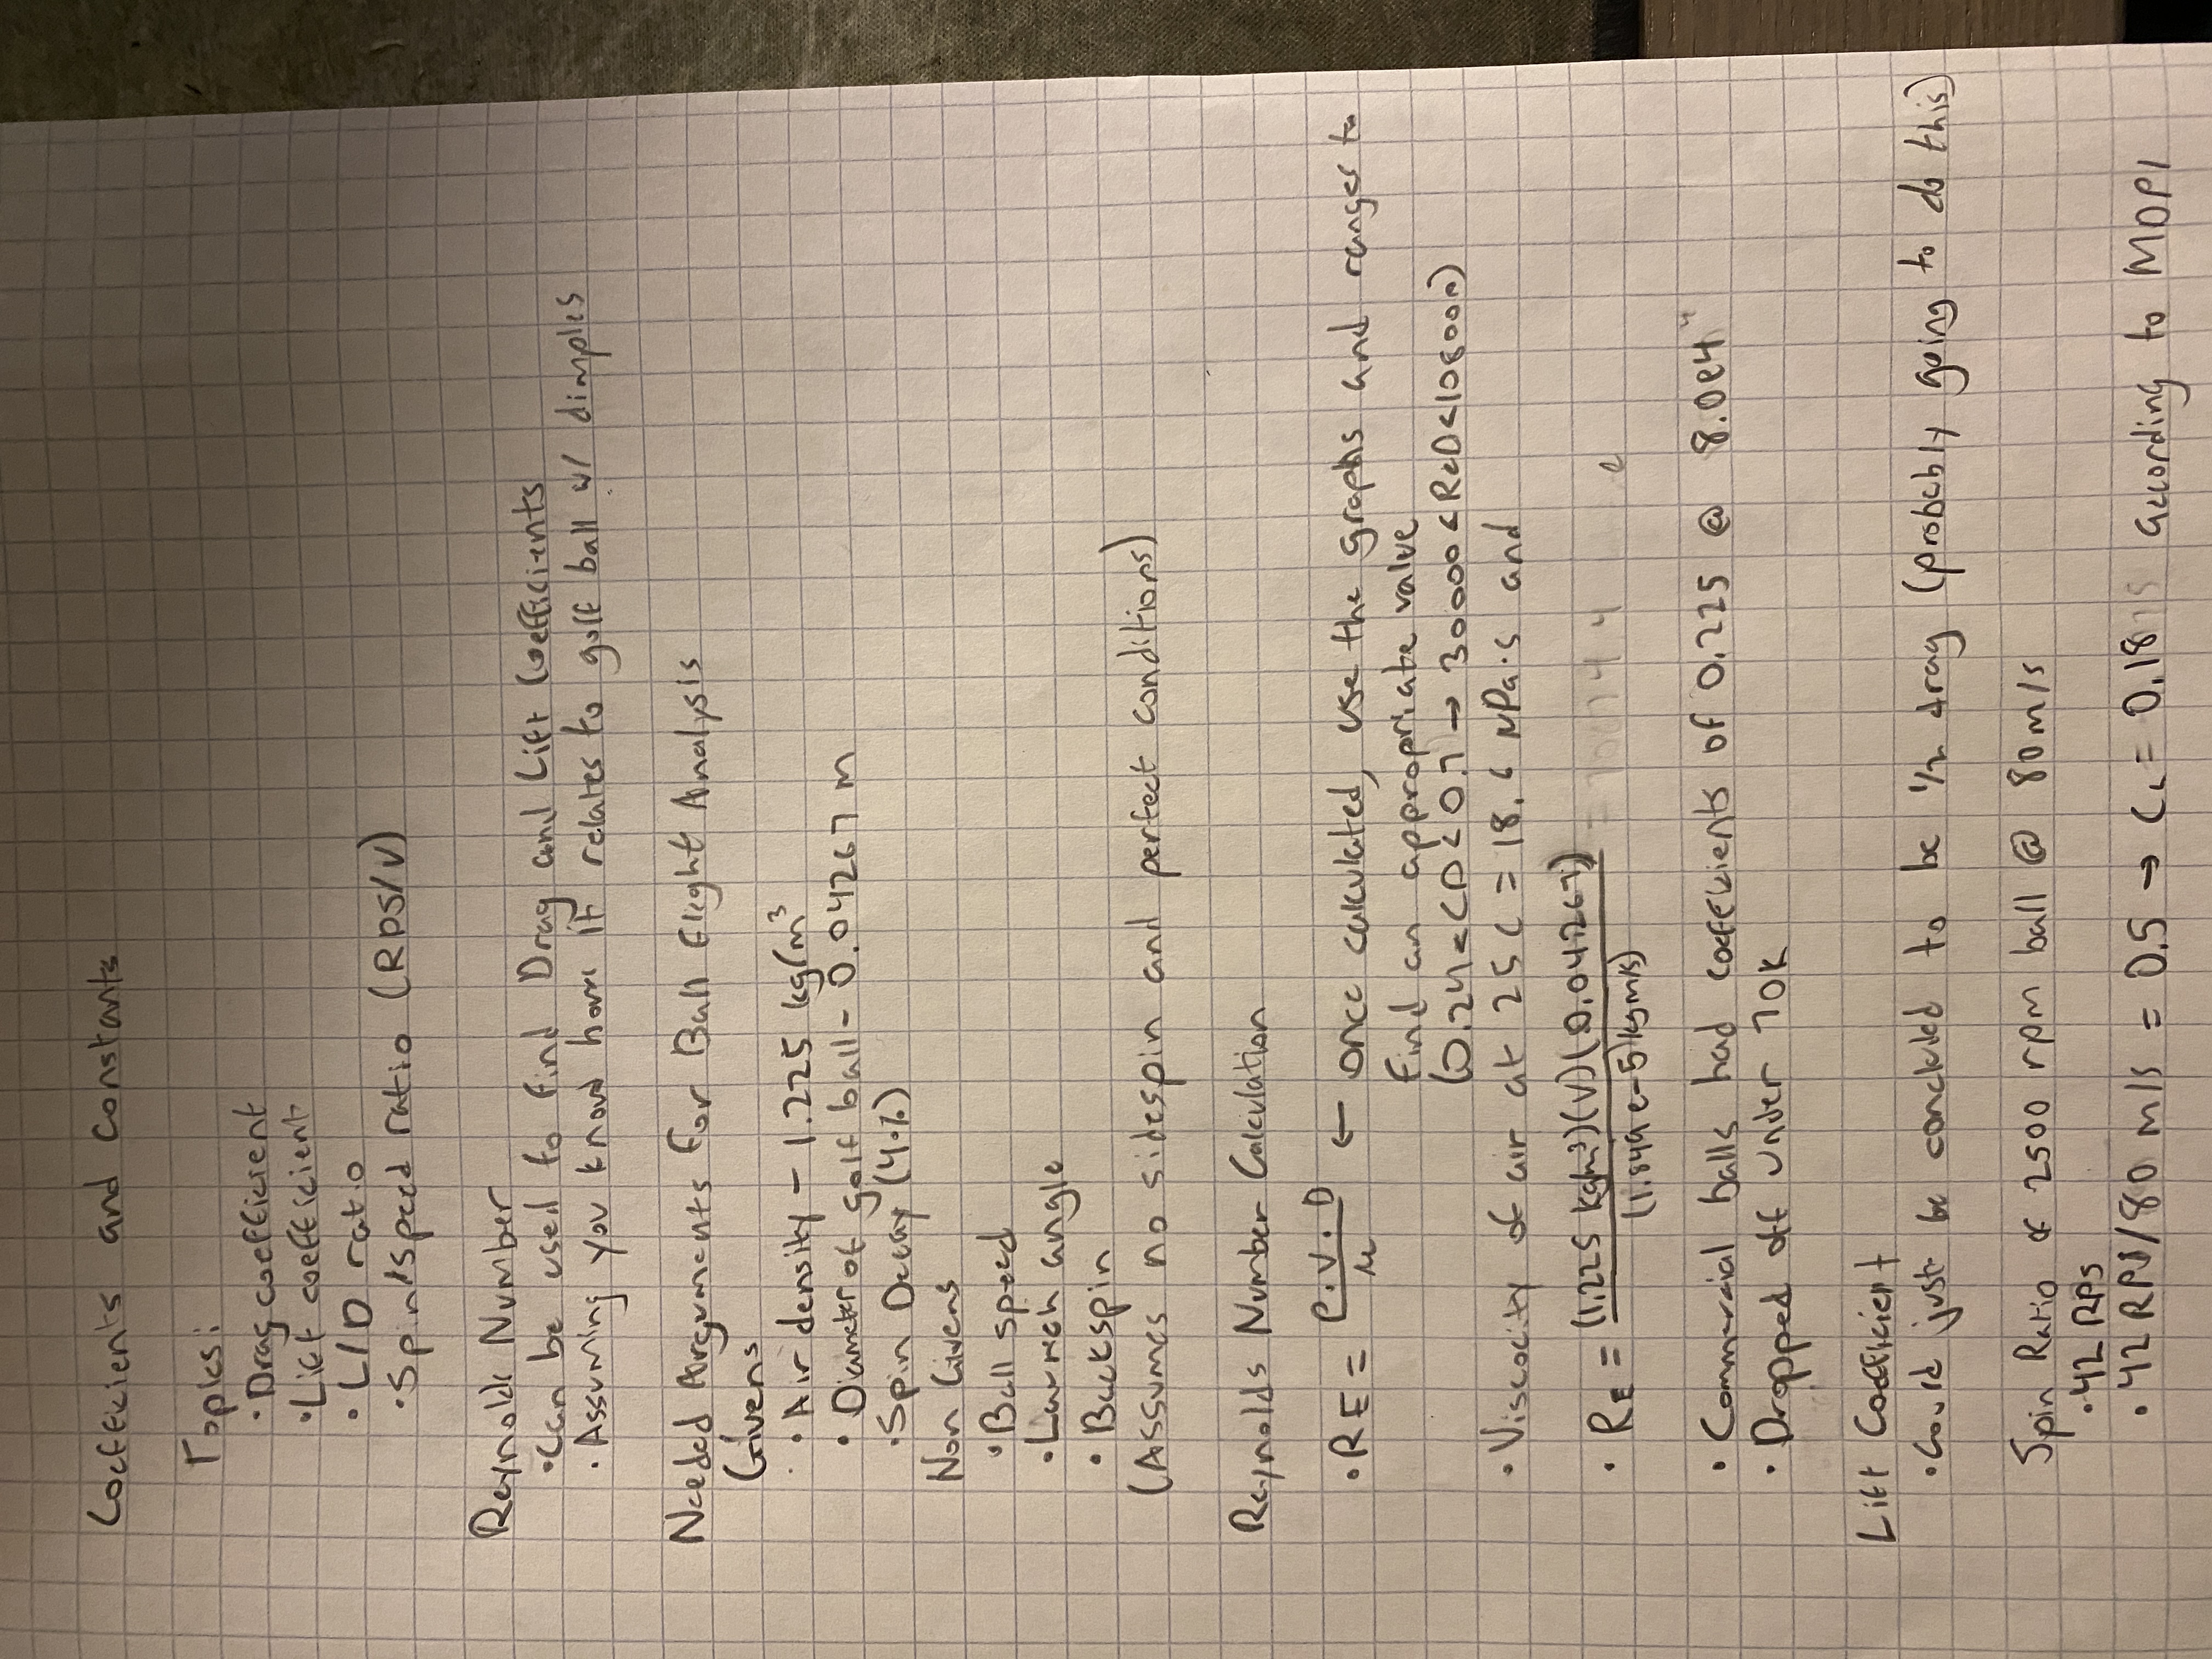 Coefficients and Constants
Topics:
• Drag coefficient
• Lift coefficient
• L/D ratio
• Spin/speed ratio (RPS/V)
Reynolds Number
• Can be used to find Drag and Lift Coefficients
• Assuming you know how it relates to golf ball w/ dimples
Needed Arguments for Ball flight Analysis
Givens
• Air density – 1.225 kg/m³
• Diameter of golf ball – 0.04267 m
• Spin Decay (4%)
Non Givens
• Ball speed
• Launch angle
• Backspin
(Assumes no sidespin and perfect conditions)
Reynolds Number Calculation
• RE = ρ·V·D / μ ← once calculated, use the graphs and ranges to
find an appropriate value
(0.24 < CD < 0.7 → 30000 < ReD < 108000)
• Viscocity of air at 25 C = 18.6 μPa·s and
• RE = (1.225 kg/m³)(V)(0.04267) / (1.849e-5 kgm/s)
• Commercial balls had coefficients of 0.225 @ 8.0e4
• Dropped off under 70k
Lift Coefficient
• Could just be concluded to be 1/2 drag (probably going to do this)
Spin Ratio of 2500 rpm ball @ 80m/s
• 42 RPS
• 42 RPS/80 m/s = 0.5 → CL = 0.18 according to MDPI